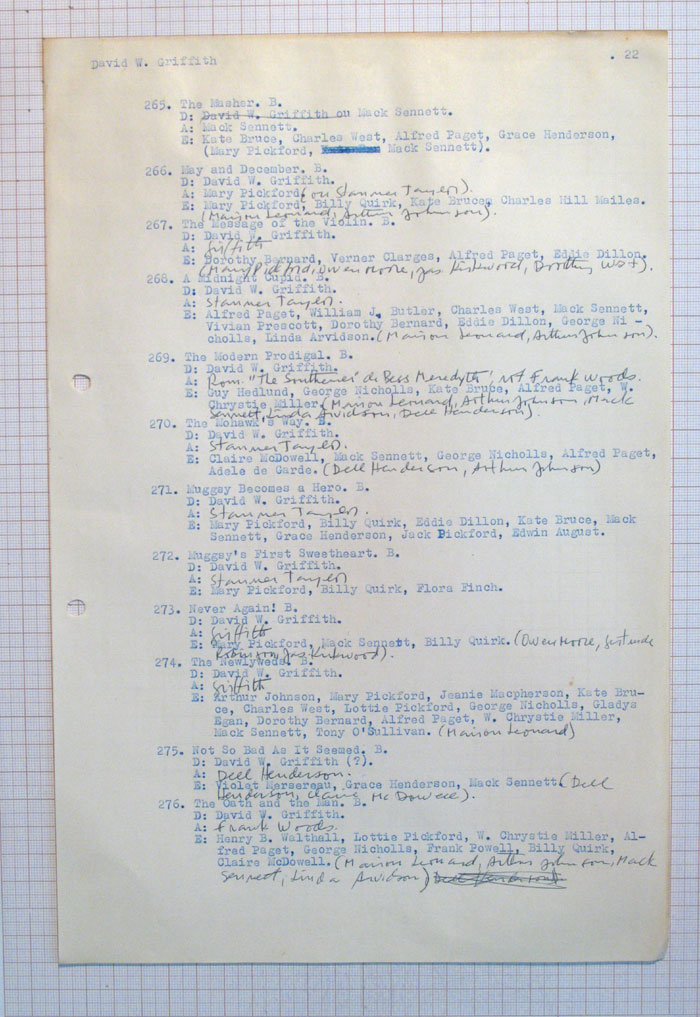 David W. Griffith . 22
265. The Masher. B.
D: David W. Griffith ou Mack Sennett.
A: Mack Sennett.
E: Kate Bruce, Charles West, Alfred Paget, Grace Henderson,
(Mary Pickford, Mack Sennett).
266. May and December. B.
D: David W. Griffith.
A: Mary Pickford (ou Stanner Taylor).
E: Mary Pickford, Billy Quirk, Kate Bruce, Charles Hill Mailes.
(Marion Leonard, Arthur Johnson).
267. The Message of the Violin. B.
D: David W. Griffith.
A: Griffith
E: Dorothy Bernard, Verner Clarges, Alfred Paget, Eddie Dillon.
(Mary Pickford, Owen Moore, Jas Kirkwood, Dorothy West).
268. A Midnight Cupid. B.
D: David W. Griffith.
A: Stanner Taylor.
E: Alfred Paget, William J. Butler, Charles West, Mack Sennett,
Vivian Prescott, Dorothy Bernard, Eddie Dillon, George Ni-
cholls, Linda Arvidson. (Marion Leonard, Arthur Johnson).
269. The Modern Prodigal. B.
D: David W. Griffith.
A: Rom. "The Southerner" de Bess Meredyth! not Frank Woods.
E: Guy Hedlund, George Nicholls, Kate Bruce, Alfred Paget, W.
Chrystie Miller (Marion Leonard, Arthur Johnson, Mack
Sennett, Linda Arvidson, Dell Henderson).
270. The Mohawk's Way. B.
D: David W. Griffith.
A: Stanner Taylor.
E: Claire McDowell, Mack Sennett, George Nicholls, Alfred Paget,
Adele de Garde. (Dell Henderson, Arthur Johnson)
271. Muggsy Becomes a Hero. B.
D: David W. Griffith.
A: Stanner Taylor.
E: Mary Pickford, Billy Quirk, Eddie Dillon, Kate Bruce, Mack
Sennett, Grace Henderson, Jack Pickford, Edwin August.
272. Muggsy's First Sweetheart. B.
D: David W. Griffith.
A: Stanner Taylor
E: Mary Pickford, Billy Quirk, Flora Finch.
273. Never Again! B.
D: David W. Griffith.
A: Griffith
E: Mary Pickford, Mack Sennett, Billy Quirk. (Owen Moore, Gertrude
Robinson, Jas Kirkwood).
274. The Newlyweds. B.
D: David W. Griffith.
A: Griffith
E: Arthur Johnson, Mary Pickford, Jeanie Macpherson, Kate Bru-
ce, Charles West, Lottie Pickford, George Nicholls, Gladys
Egan, Dorothy Bernard, Alfred Paget, W. Chrystie Miller,
Mack Sennett, Tony O'Sullivan. (Marion Leonard)
275. Not So Bad As It Seemed. B.
D: David W. Griffith (?).
A: Dell Henderson.
E: Violet Mersereau, Grace Henderson, Mack Sennett (Dell
Henderson, Claire McDowell).
276. The Oath and the Man. B.
D: David W. Griffith.
A: Frank Woods.
E: Henry B. Walthall, Lottie Pickford, W. Chrystie Miller, Al-
fred Paget, George Nicholls, Frank Powell, Billy Quirk,
Claire McDowell. (Marion Leonard, Arthur Johnson, Mack
Sennett, Linda Arvidson) Dell Henderson)